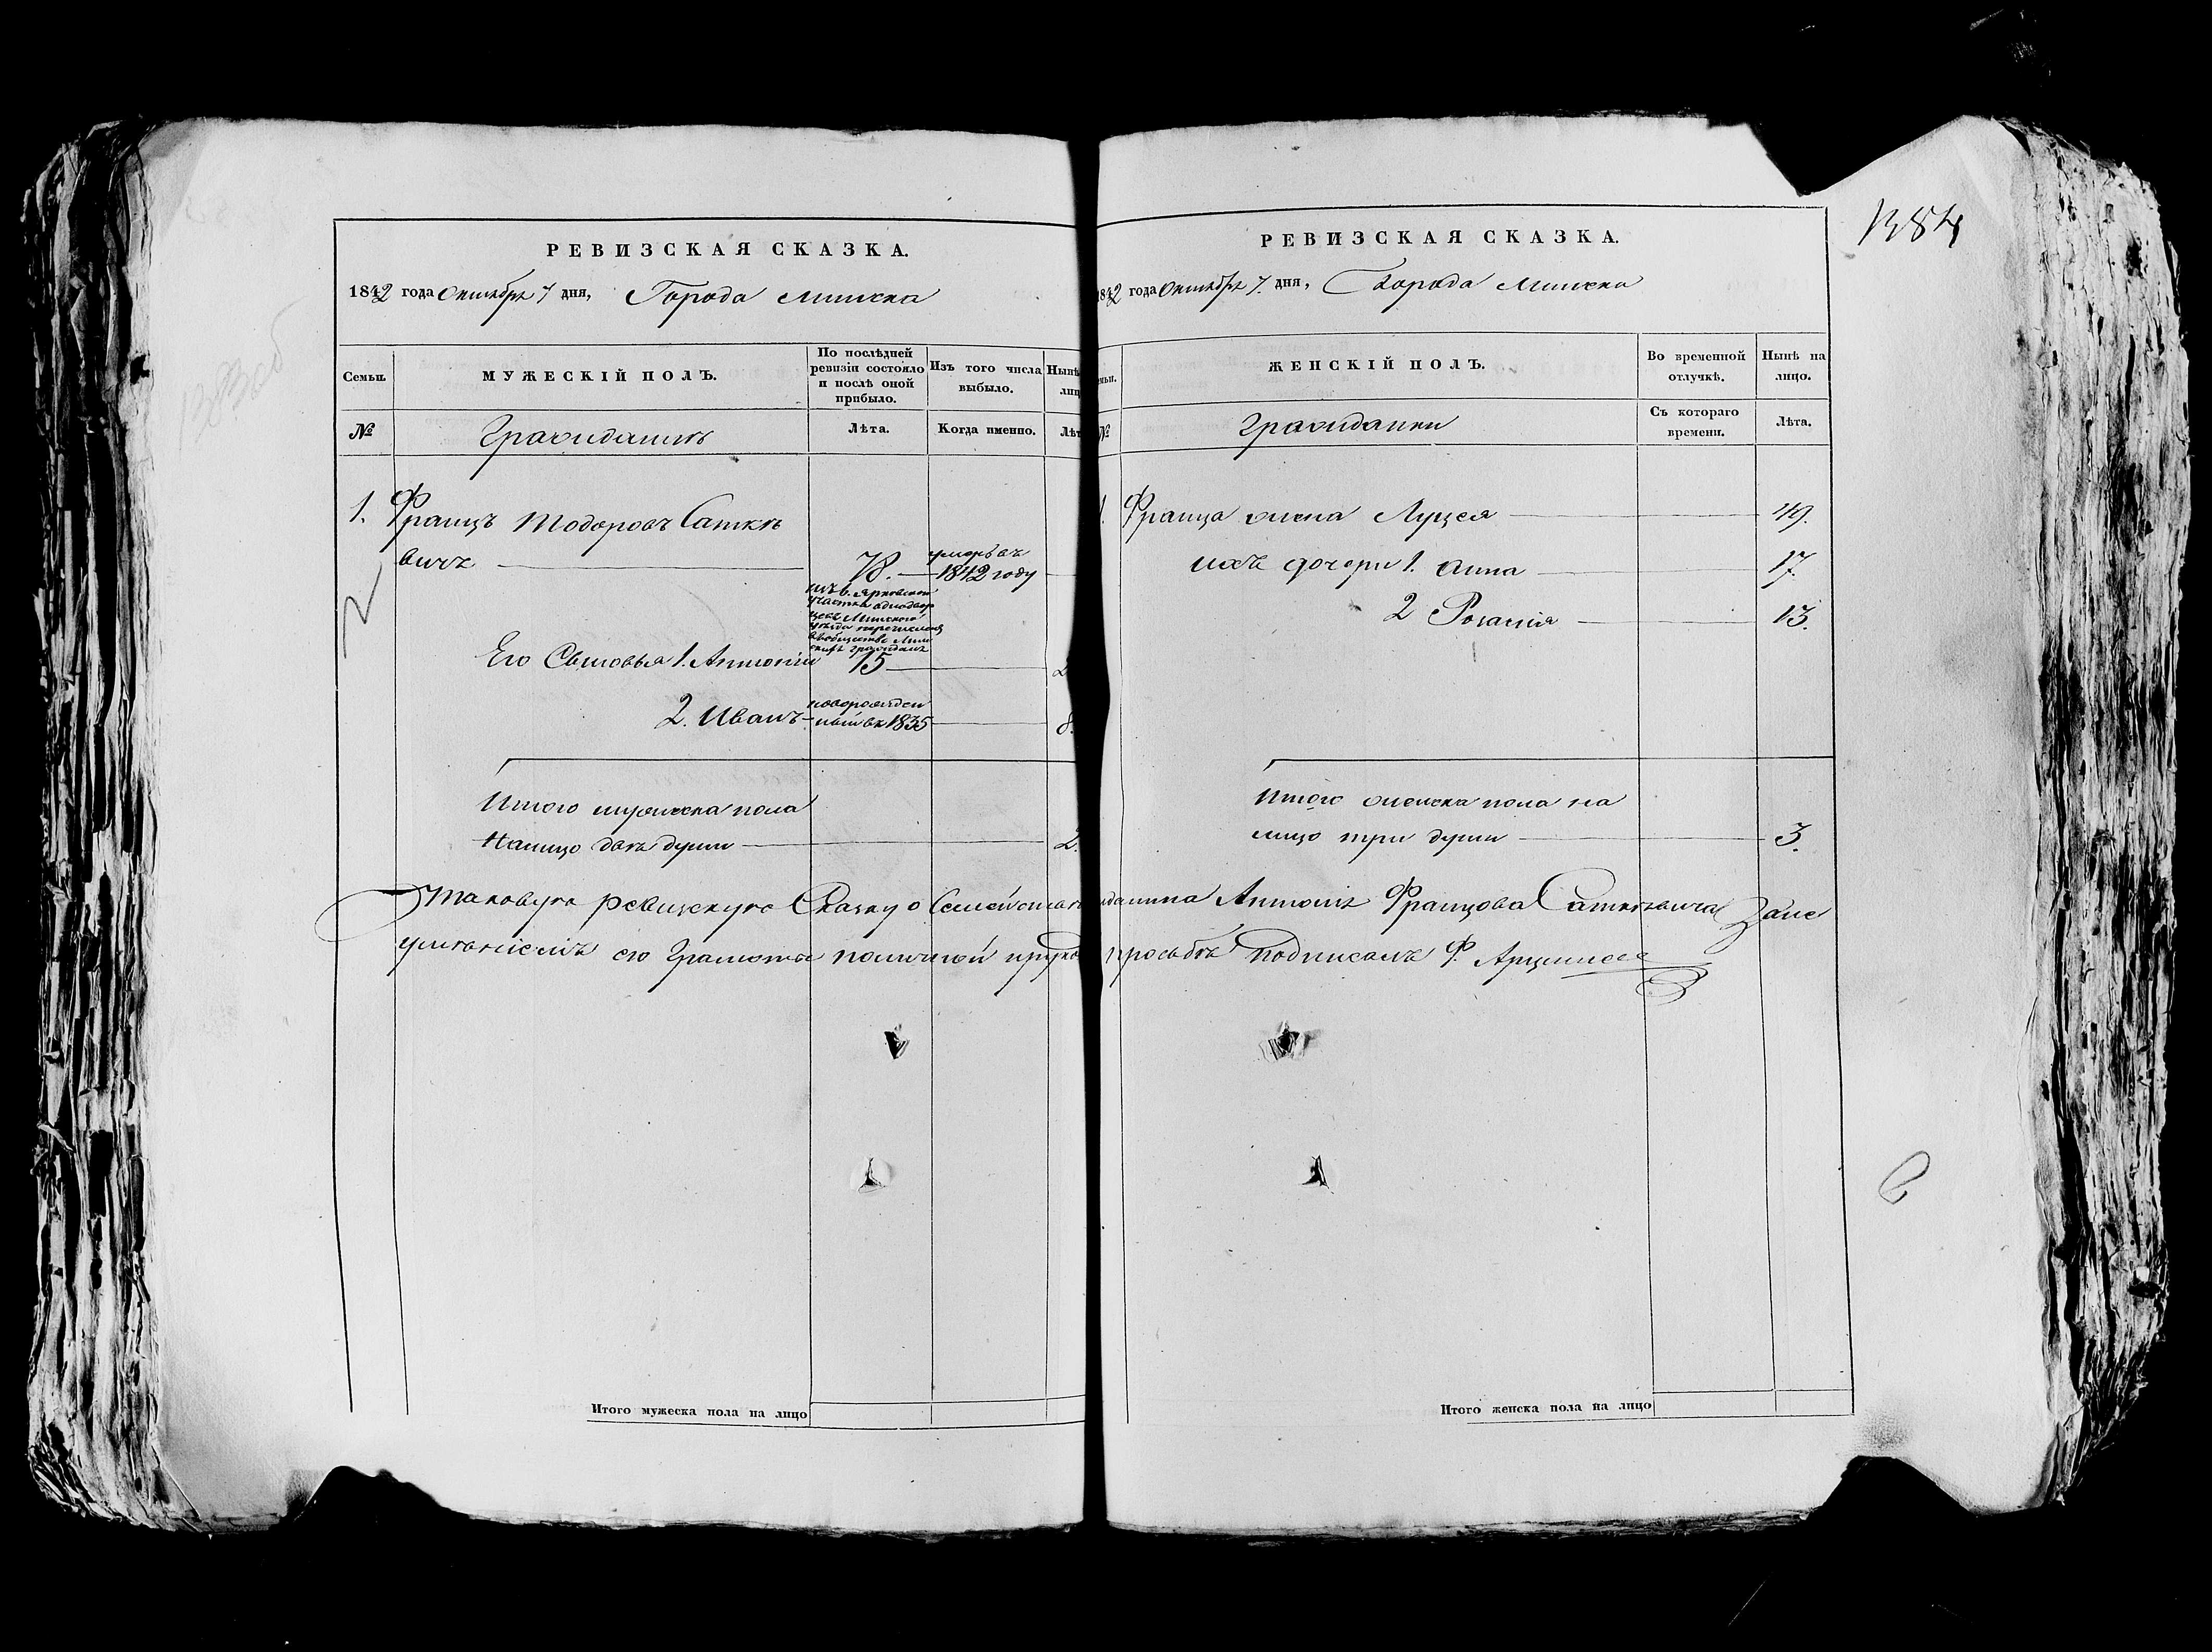 РЕВИЗСКАЯ СКАЗКА.
1842 года Октября 7 дня, Города Минска
Семьи.
МУЖЕСКІЙ ПОЛЪ.
По послѣдней ревизіи состояло и послѣ оной прибыло.
Изъ того числа выбыло.
Нынѣ лиц
№
Гражданинъ
Лѣта.
Когда именно.
Лѣт
1. Францъ Тодоровъ Саткѣ
вичъ 78. умеръ въ 1842 году
изъ
участка однодвор
цевъ Минского
уѣзда перечисленъ
въ общество Мин
скихъ гражданъ
Его Сыновья 1. Антоній 15 2
2. Иванъ новорожден
ный въ 1835 8.
Итого мужеска пола
Налицо двѣ души 2.
Таковую ревизскую Сказку о Семействѣ
умѣніемъ его Грамоты
Итого мужеска пола на лицо
РЕВИЗСКАЯ СКАЗКА.
1384
842 года Октября 7. дня, Города Минска
емьи.
ЖЕНСКІЙ ПОЛЪ.
Во временной отлучкѣ.
Нынѣ на лицо.
№
Гражданки
Съ котораго времени.
Лѣта.
1. Франца жена Луцея 49.
ихъ дочери 1. Анна 17.
2 Розалія 13.
Итого женска пола на
лицо три души 3.
данина Антонія Францова Саткѣвича за не
просьбѣ подписалъ Ф.
Итого женска пола на лицо